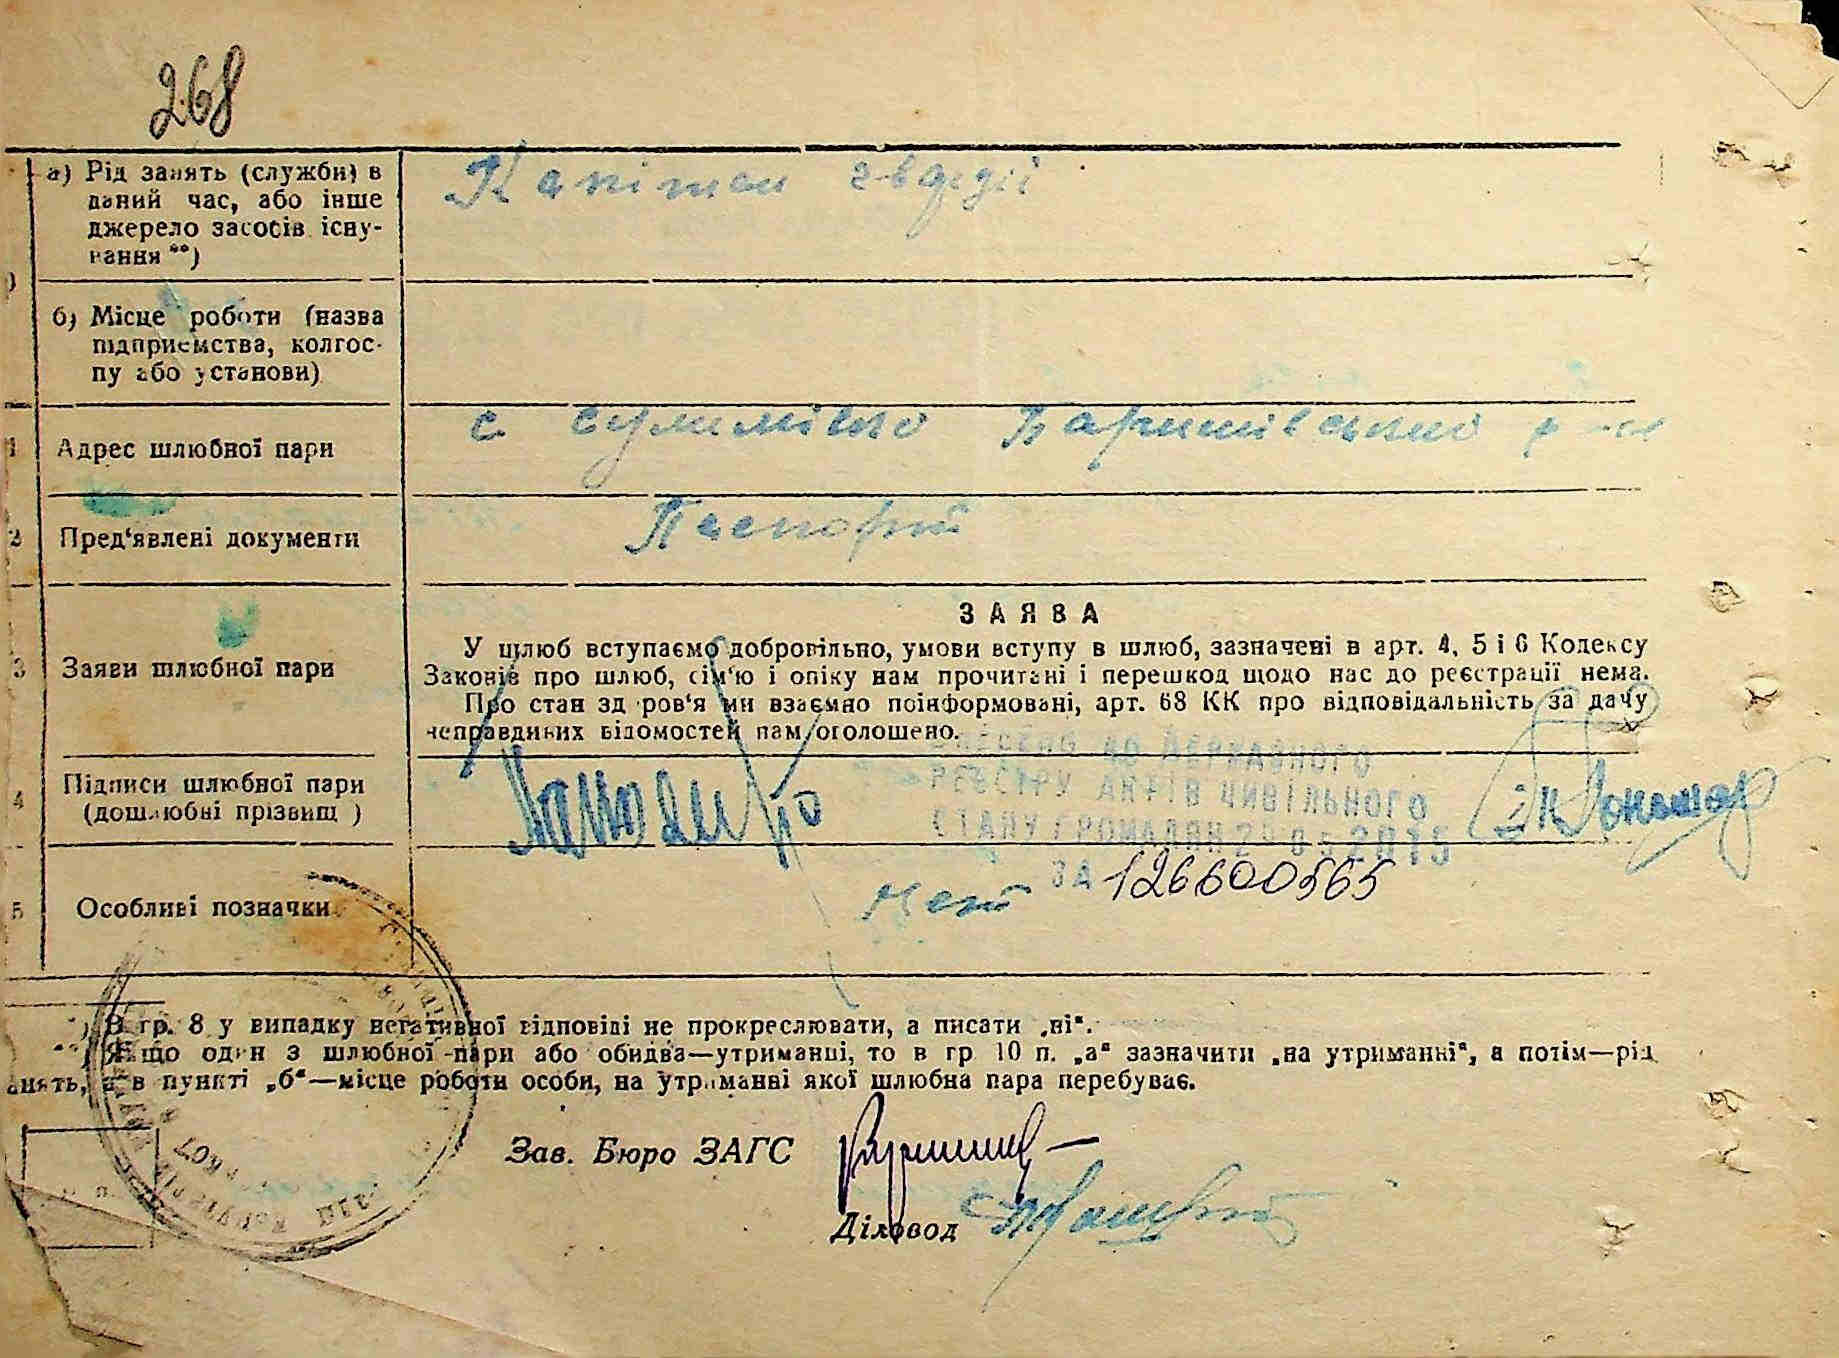 268
а) Рід занять (служби) в
даний час, або інше
джерело засобів існу-
вання **)
Капітан гвардії
б) Місце роботи (назва
підприємства, колгос-
пу або установи)
1 Адрес шлюбної пари
с Сулимівка Баришівський р-н
2 Пред'явлені документи
Паспорт
3 Заяви шлюбної пари
ЗАЯВА
У шлюб вступаємо добровільно, умови вступу в шлюб, зазначені в арт. 4, 5 і 6 Кодексу
Законів про шлюб, сім'ю і опіку нам прочитані і перешкод щодо нас до реєстрації нема.
Про стан здоров'я ми взаємно поінформовані, арт. 68 КК про відповідальність за дачу
неправдивих відомостей нам оголошено.
4 Підписи шлюбної пари
(дошлюбні прізвищ )
ВНЕСЕНО ДО ДЕРЖАВНОГО
РЕЄСТРУ АКТІВ ЦИВІЛЬНОГО
СТАНУ ГРОМАДЯН 2 05 2015
ЗА 126600565
5 Особливі позначки
*) В гр. 8 у випадку негативної відповіді не прокреслювати, а писати „ні“.
**) Якщо один з шлюбної пари або обидва—утриманці, то в гр 10 п. „а“ зазначити „на утриманні“, а потім—рід
анять, а в пункті „б“—місце роботи особи, на утриманні якої шлюбна пара перебуває.
Зав. Бюро ЗАГС
Діловод